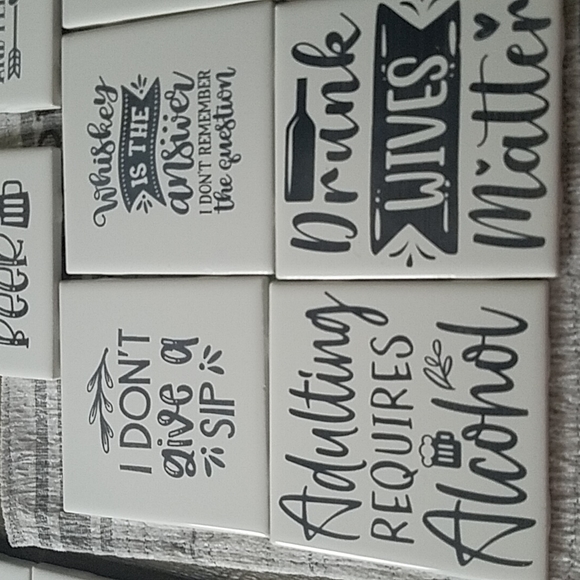 Whiskey
IS THE
answer
I DON'T REMEMBER
the question
Drunk
WIVES
Matter
BEER
I DON'T
give a
SIP
Adulting
REQUIRES
Alcohol